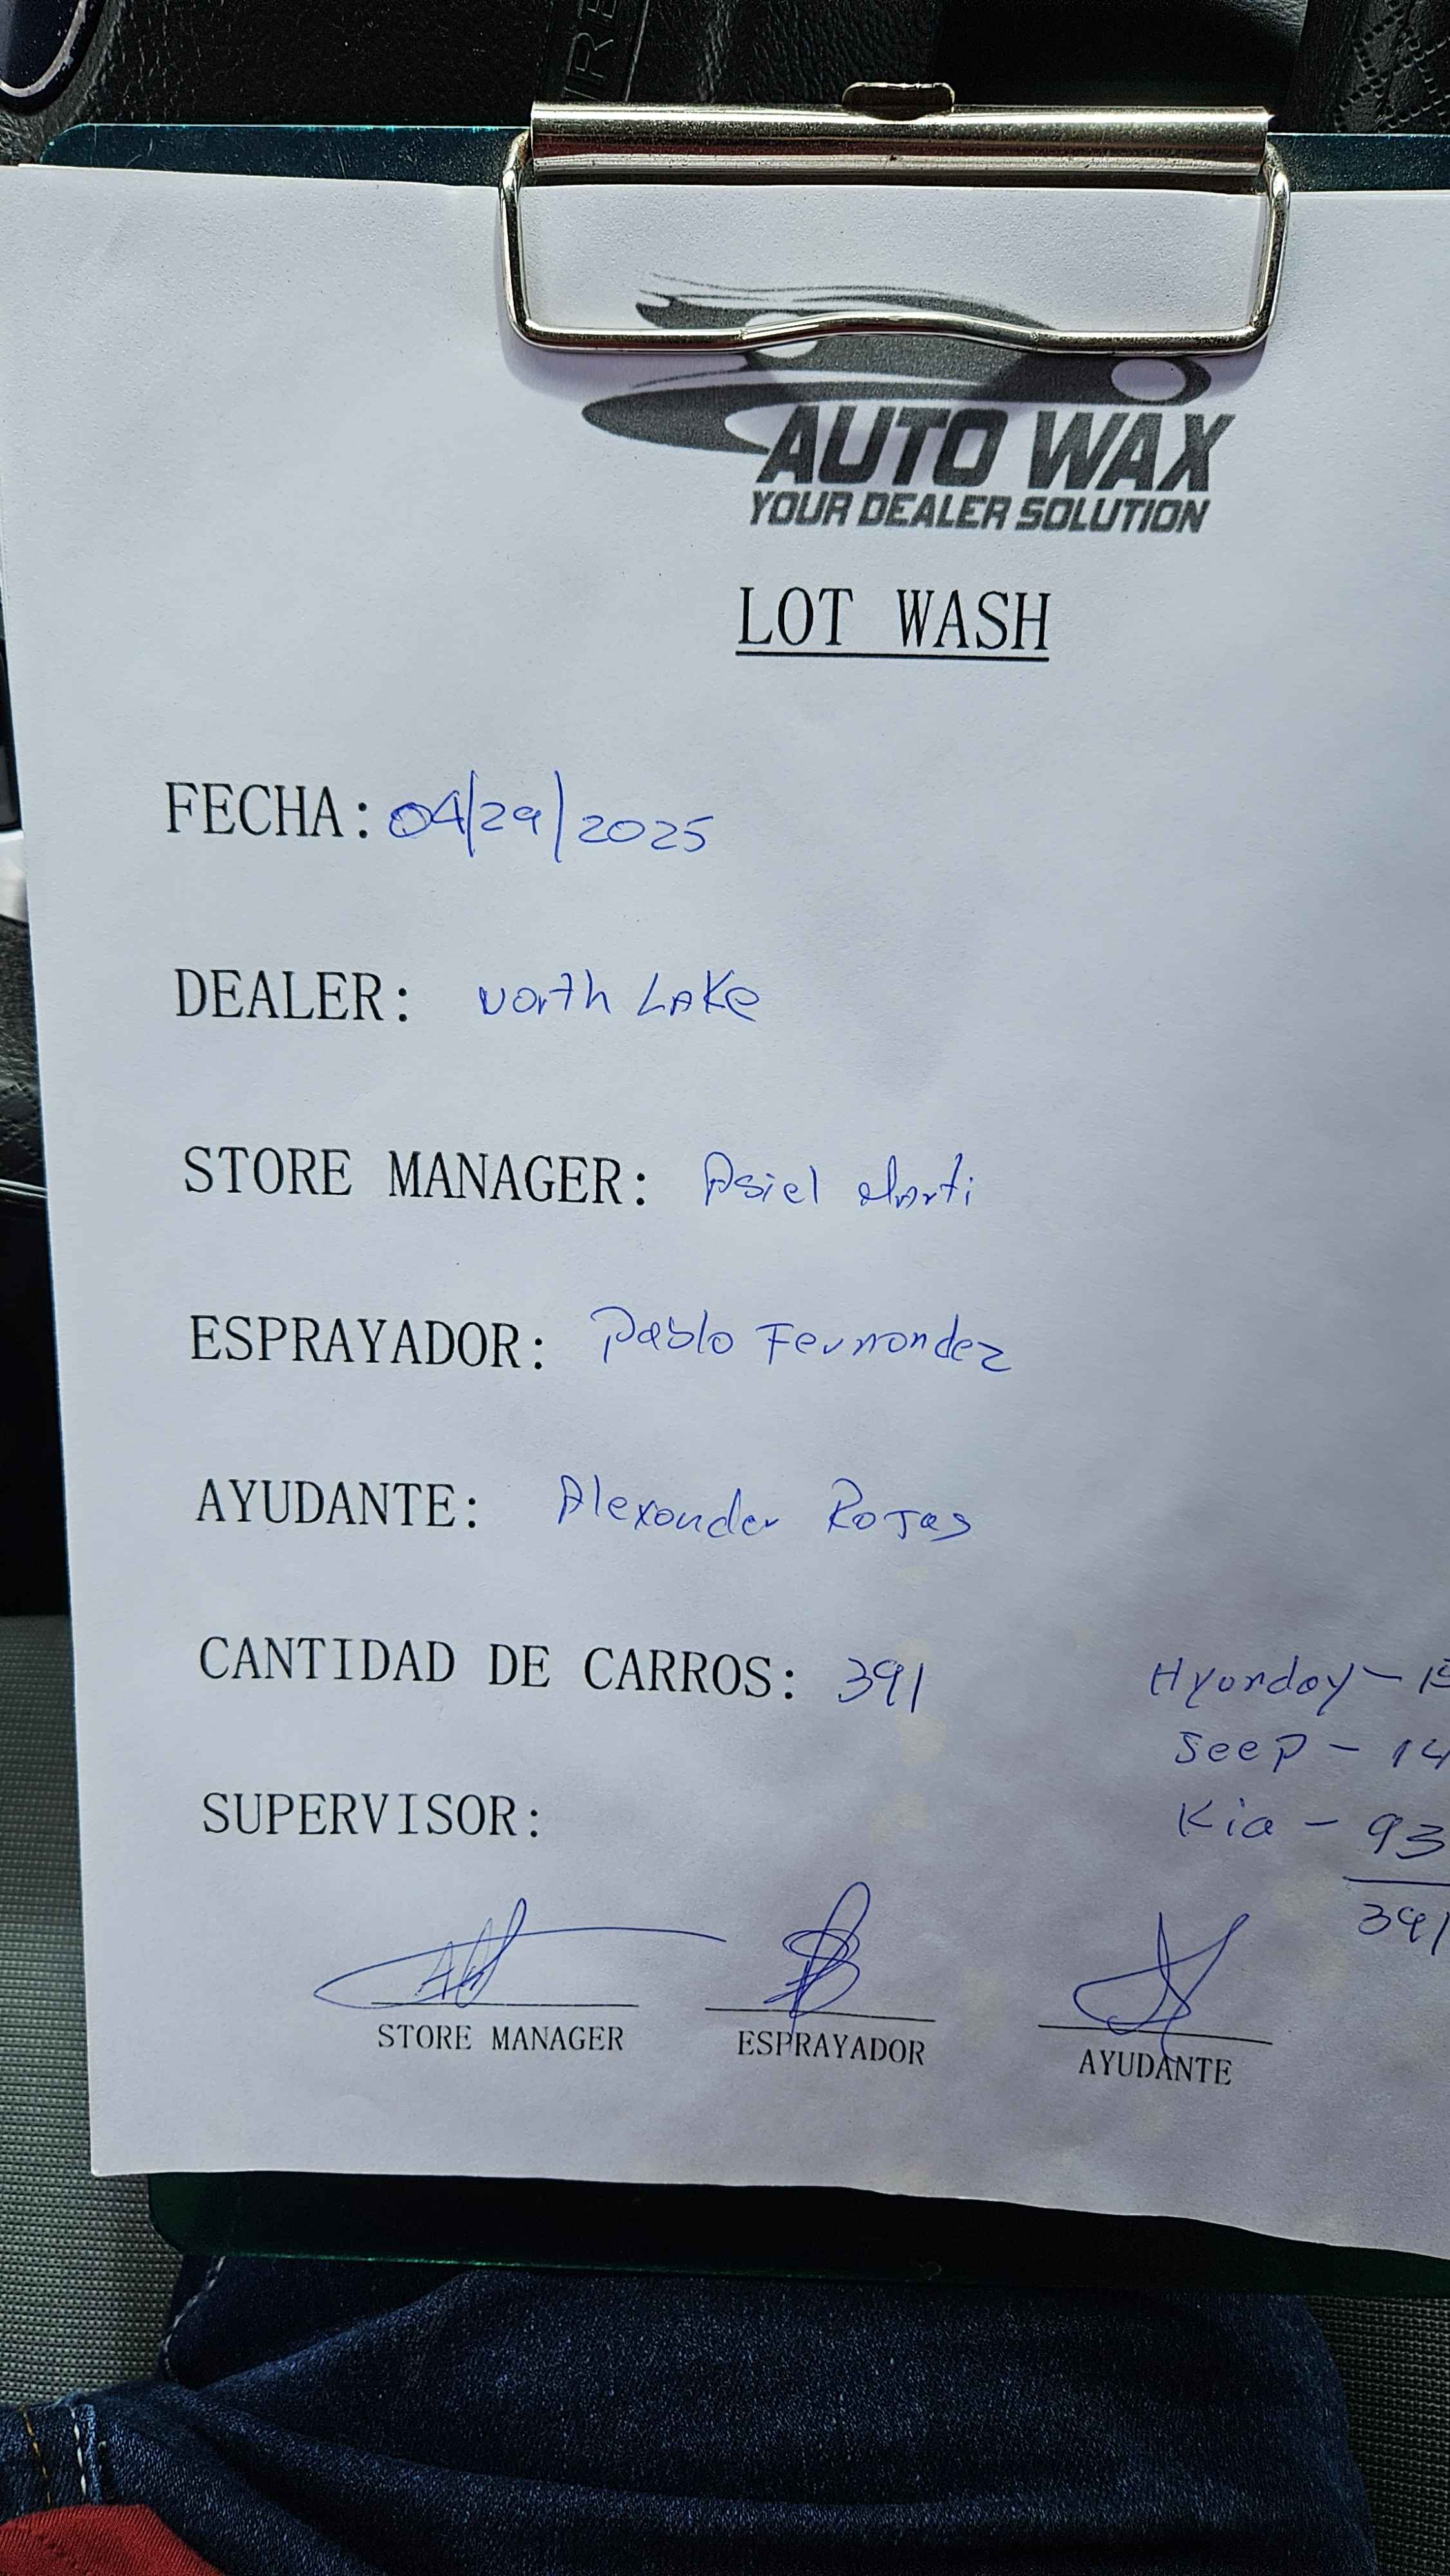 AUTO WAX
YOUR DEALER SOLUTION
LOT WASH
FECHA: 04/29/2025
DEALER: North Lake
STORE MANAGER: Asiel Marti
ESPRAYADOR: Pablo Fernandez
AYUDANTE: Alexander Rojas
CANTIDAD DE CARROS: 391
Hyunday -
Jeep - 14
Kia - 93
391
SUPERVISOR:
STORE MANAGER
ESPRAYADOR
AYUDANTE